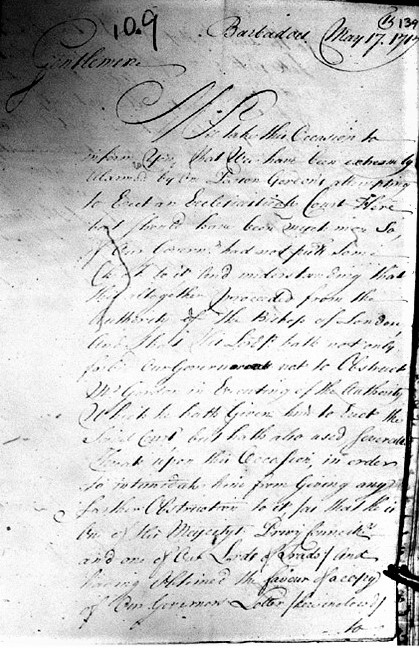 109
B 139
Barbadoes May 17. 17
Gentlemen
We take this Occasion to
inform You, that We have been extreamly
Alarmed by One Parson Gordon's attempting
to Erect an Ecclesiasticall Court Here
but should have been much more So,
if Our Governr had not putt Some
Check to it And understanding that
this altogether proceeded from the
Authority of the Bishop of London
And That his Ldsp hath not only
forbid Our Governor not to Obstruct
Mr Gordon in Executing of the Authority
Which he hath Given him to Erect the
Said Court but hath also used severall
Threats upon this Occasion, in order
to intimidate him from Giving any
farther Obstruction to it, (as that He is
One of His Majestys Privy Councill
and one of the Lords of Trade) and
having Obtained the favour of a Copy
of Our Governors Letter (here inclosed)
to